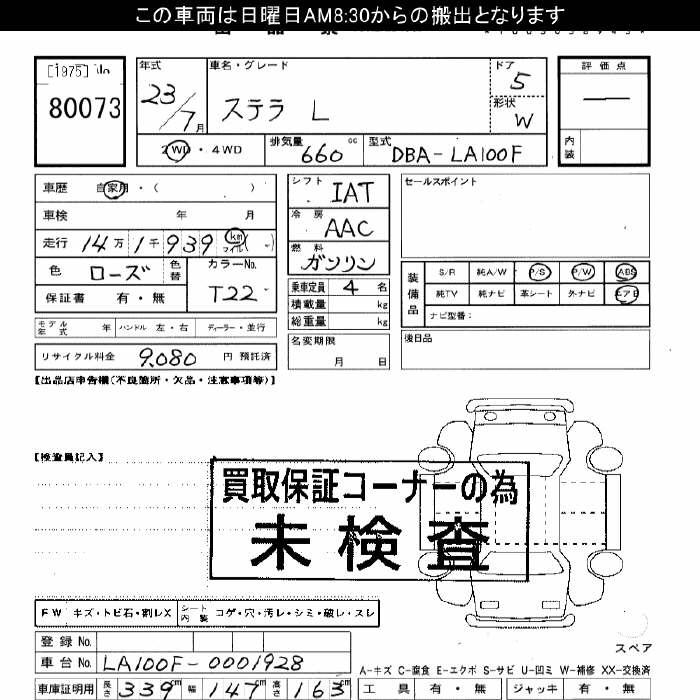 この車両は日曜日AM8:30からの搬出となります
[1975] No
80073
年式
23/7月
車名・グレード
ステラ L
ドア
5
形状
W
評価点
—
内装
2WD・4WD
排気量
660cc
型式
DBA-LA100F
車歴 自家用・( )
車検 年 月
走行 14万1千939 km マイル( )
色 ローズ 色替
カラーNo.
T22
保証書 有・無
モデル年式 年 ハンドル 左・右 ディーラー・並行
リサイクル料金 9,080 円 預託済
シフト IAT
冷房 AAC
燃料 ガソリン
乗車定員 4 名
積載量 kg
総重量 kg
名変期限
月 日
セールスポイント
装備品
S/R 純A/W P/S P/W ABS
純TV 純ナビ 革シート 外ナビ エアB
ナビ型番：
後日品
【出品店申告欄(不良箇所・欠品・注意事項等)】
【検査員記入】
買取保証コーナーの為
未検査
FW キズ・トビ石・割レX
シート内装 コゲ・穴・汚レ・シミ・破レ・スレ
スペア
登録 No.
車台 No. LA100F-0001928
A-キズ C-腐食 E-エクボ S-サビ U-凹ミ W-補修 XX-交換済
車庫証明用 長さ 339cm 幅 147cm 高さ 163cm
工具 有・無 ジャッキ 有・無